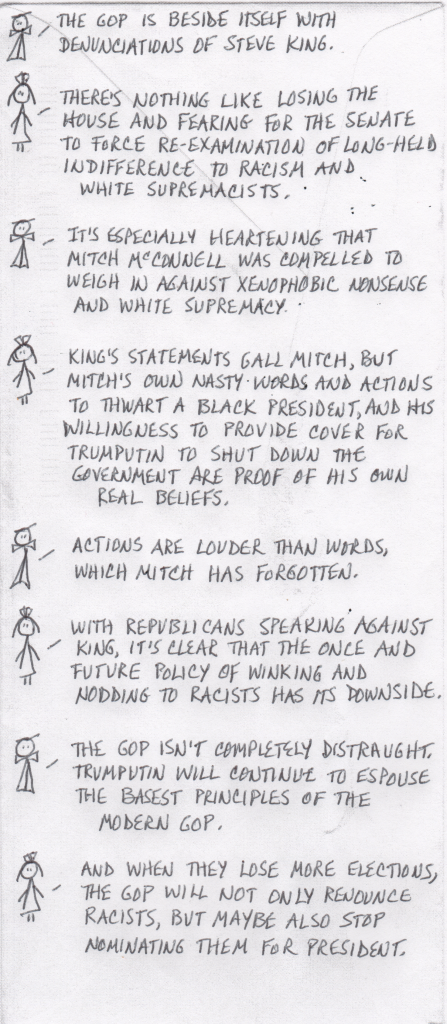 THE GOP IS BESIDE ITSELF WITH
DENUNCIATIONS OF STEVE KING.
THERE'S NOTHING LIKE LOSING THE
HOUSE AND FEARING FOR THE SENATE
TO FORCE RE-EXAMINATION OF LONG-HELD
INDIFFERENCE TO RACISM AND
WHITE SUPREMACISTS.
IT'S ESPECIALLY HEARTENING THAT
MITCH McCONNELL WAS COMPELLED TO
WEIGH IN AGAINST XENOPHOBIC NONSENSE
AND WHITE SUPREMACY.
KING'S STATEMENTS GALL MITCH, BUT
MITCH'S OWN NASTY WORDS AND ACTIONS
TO THWART A BLACK PRESIDENT, AND HIS
WILLINGNESS TO PROVIDE COVER FOR
TRUMPUTIN TO SHUT DOWN THE
GOVERNMENT ARE PROOF OF HIS OWN
REAL BELIEFS.
ACTIONS ARE LOUDER THAN WORDS,
WHICH MITCH HAS FORGOTTEN.
WITH REPUBLICANS SPEAKING AGAINST
KING, IT'S CLEAR THAT THE ONCE AND
FUTURE POLICY OF WINKING AND
NODDING TO RACISTS HAS ITS DOWNSIDE.
THE GOP ISN'T COMPLETELY DISTRAUGHT.
TRUMPUTIN WILL CONTINUE TO ESPOUSE
THE BASEST PRINCIPLES OF THE
MODERN GOP.
AND WHEN THEY LOSE MORE ELECTIONS,
THE GOP WILL NOT ONLY RENOUNCE
RACISTS, BUT MAYBE ALSO STOP
NOMINATING THEM FOR PRESIDENT.